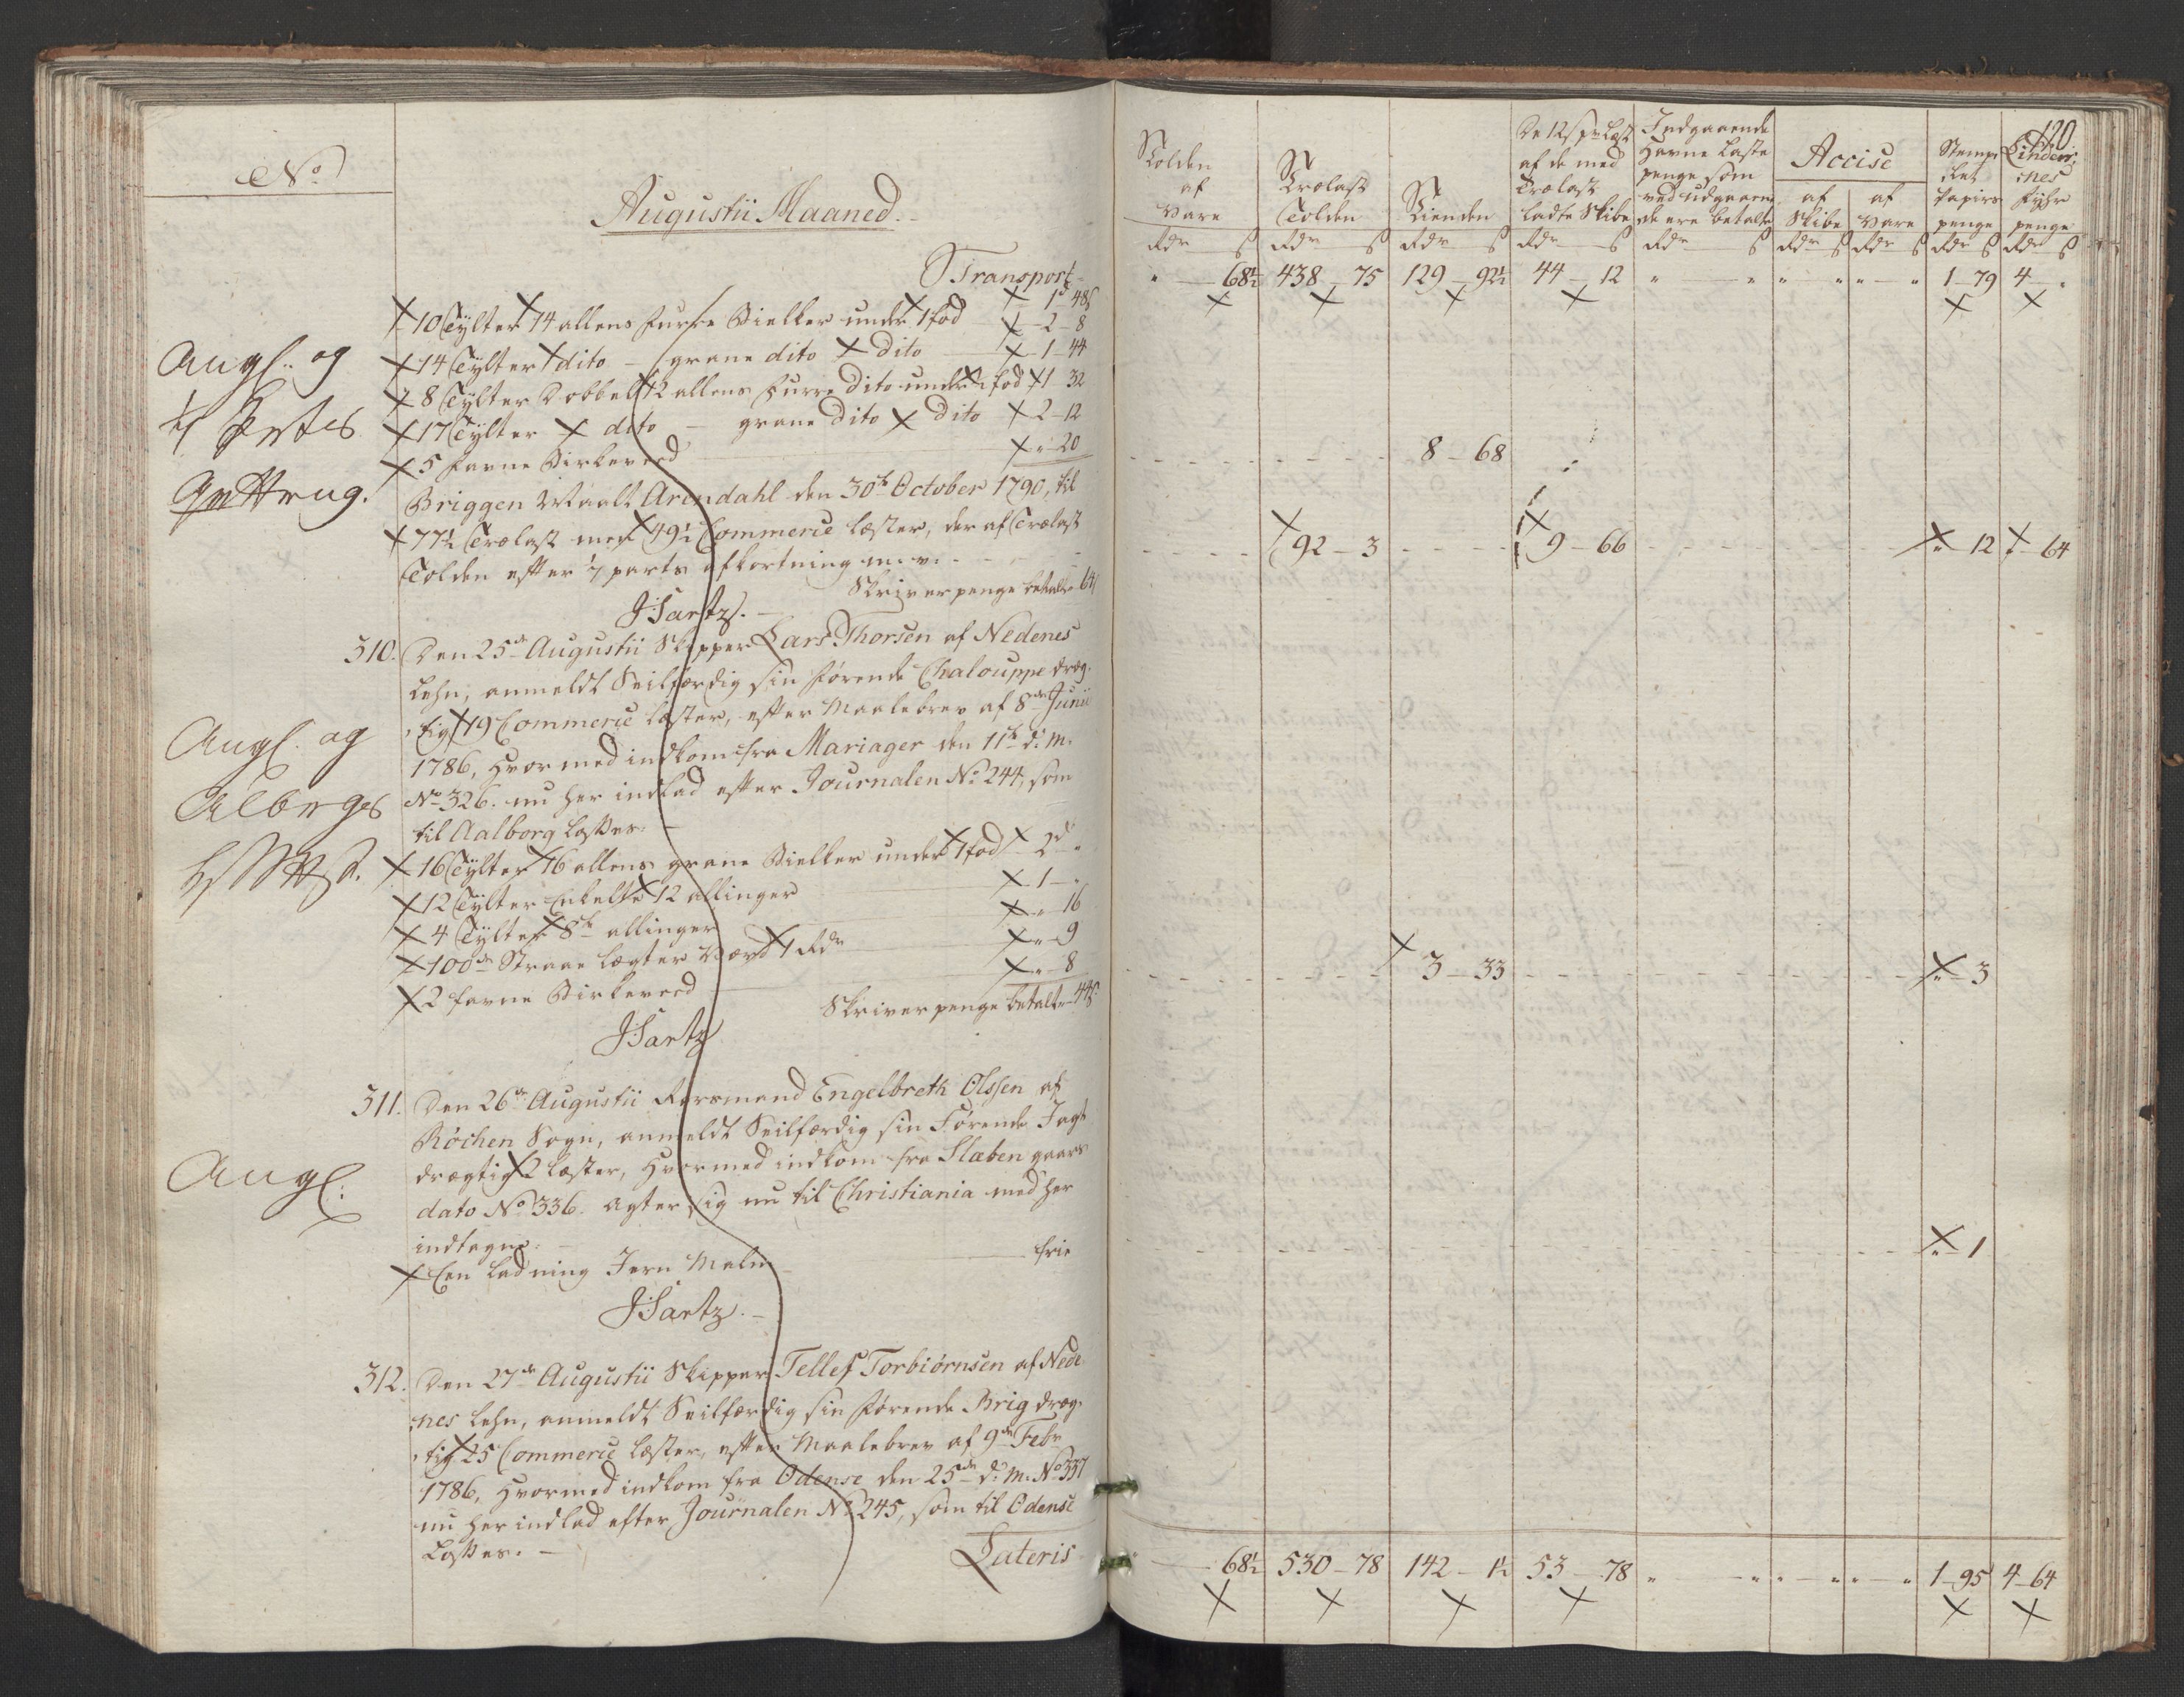 No
Augustii Maaned.
Transport
10 Tylter 14 allens furre Bielker under 1 fod 1d 48s
14 Tylter dito grane dito dito 2-8
8 Tylter Dobbelt 12 allens furre dito under 1 fod 1-44
17 Tylter dito grane dito dito 2-12
5 favne Birkeveed "-20
Briggen Maalt Arendahl den 30te October 1790, til
77½ Trælast med 49½ Commerce læster, der af Trælast
Tolden efter 1/7 parts afkortning m.v.
Skriverpenge betalte 64
JSartz.
Angl. og
310. Den 25de Augustii Skipper Lars Thorsen af Nedenes
Lehn, anmeldt Seilfærdig sin førende Chalouppe dræg-
tig 19 Commerce læster, efter Maalebrev af 8de Junii
1786, hvormed indkom fra Mariager den 11te d: M:
No 326. nu her indlad efter Journalen No 244, som
til Aalborg losses.
Angl. og
16 Tylter 16 allens grane Bielker under 1 fod 2d "
12 Tylter Enkelte 12 allinger 1-"
4 Tylter 8te allinger "-16
100de Straae lægter Værd 1 Rdr "-9
2 favne Birkeveed "-8
Skriverpenge betalt 44s
JSartz
311. Den 26de Augustii Rorsmand Engelbreth Olssen af
Röchen Sogn, anmeldt Seilfærdig sin Förende Jagt
drægtig 2 læster, hvormed indkom fra Slæben gaars
dato No 336. agter sig nu til Christiania med her
indtagne
Een ladning Jern Malm frie
JSartz.
Angl:
312. Den 27de Augustii Skipper Tellef Torbiörnsen af Nede-
nes Lehn, anmeldt Seilfærdig sin förende Brig dræg-
tig 25 Commerce læster, efter Maalebrev af 9de Febr
1786, hvormed indkom fra Odense den 25de d: M: No 337
nu her indlad efter Journalen No 245, som til Odense
Losses.
Lateris
120
Tolden af Vare
Trælast Tolden
Tienden
De 12s pr Læst af de med Trælast ladte Skibe
Indgaaende Havne Laste penge som ved udgaaende ere betalte
Accise
af Skibe
af Vare
Stempelet Papirs penge
Lindesnes Fyhr penge
Rdr s Rdr s Rdr s Rdr s Rdr s Rdr s Rdr s Rdr s Rdr s
" 68½ 438-75 129-92½ 44-12 " " " " " " 1-79 4-"
8-68
92-3 9-66 "-12 "-64
3-33 "-3
"-1
" 68½ 530-78 142-1½ 53-78 " " " " " " 1-95 4-64